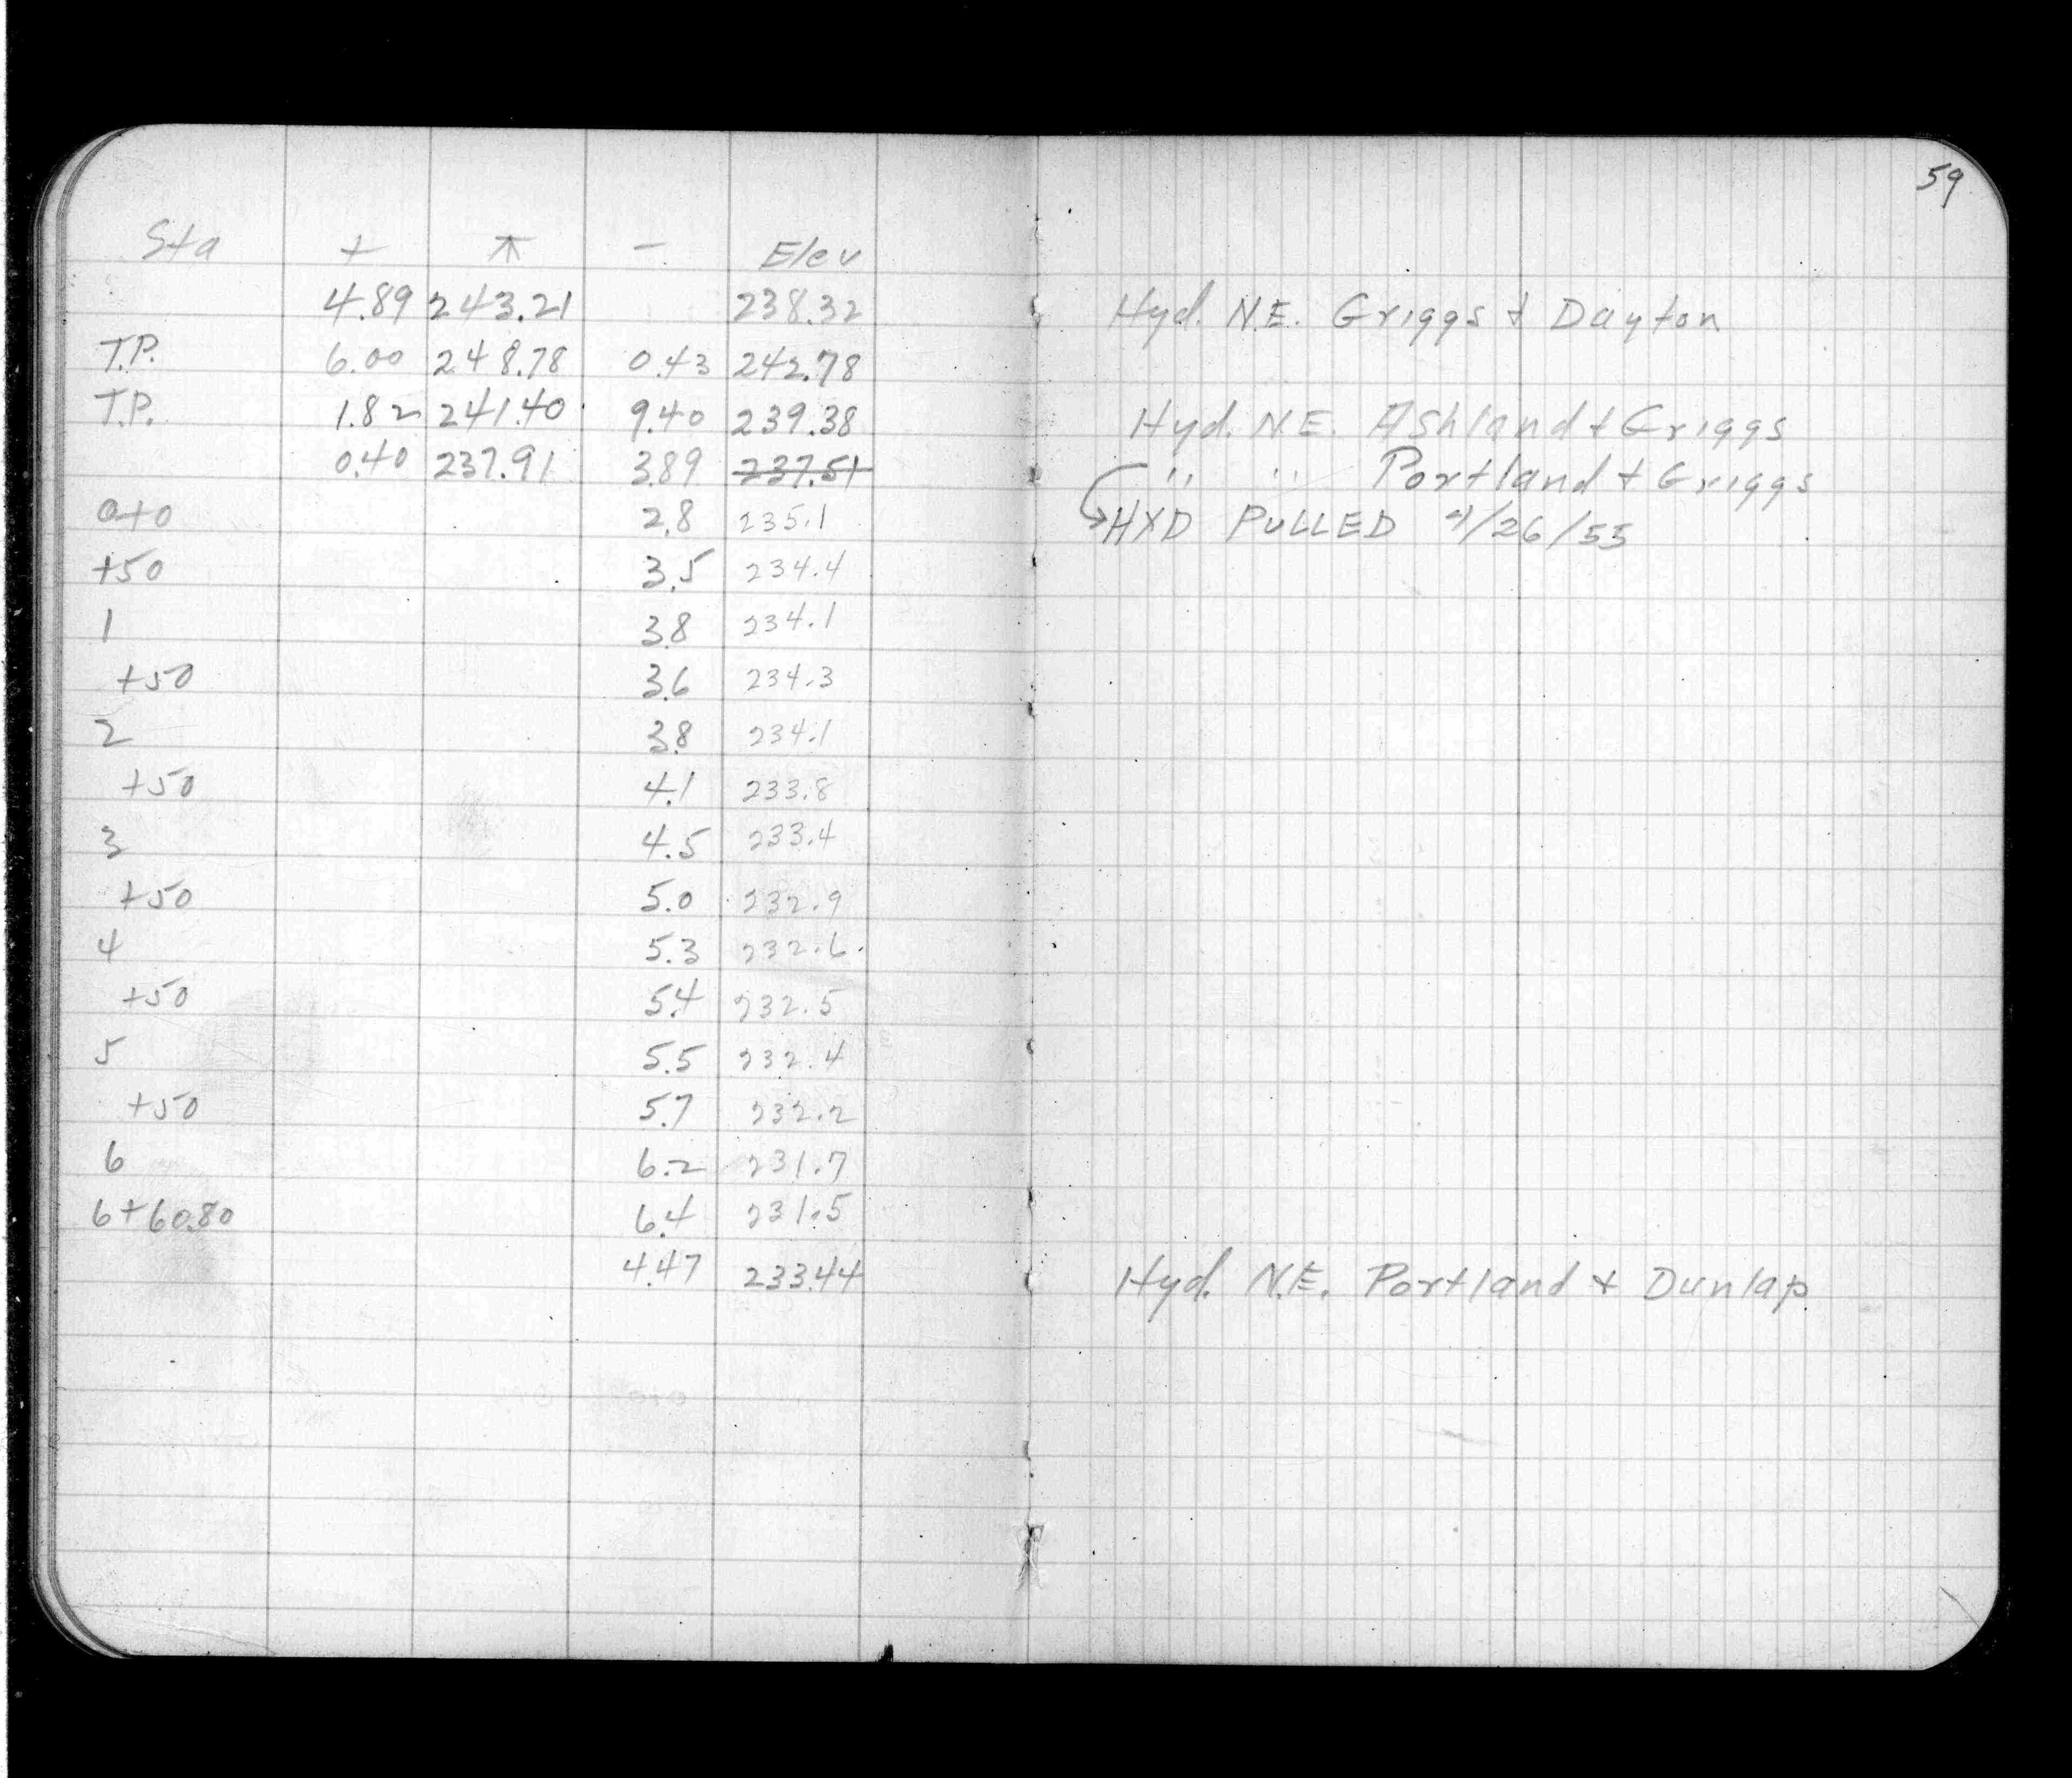 59
Sta + ⊼ - Elev
4.89 243.21 238.32 Hyd. N.E. Griggs & Dayton
T.P. 6.00 248.78 0.43 242.78
T.P. 1.82 241.40 9.40 239.38 Hyd. N.E. Ashland & Griggs
0.40 237.91 3.89 237.51 " " Portland & Griggs
0+0 2.8 235.1 HYD PULLED 9/26/55
+50 3.5 234.4
1 3.8 234.1
+50 3.6 234.3
2 3.8 234.1
+50 4.1 233.8
3 4.5 233.4
+50 5.0 232.9
4 5.3 232.6
+50 5.4 232.5
5 5.5 232.4
+50 5.7 232.2
6 6.2 231.7
6+60.80 6.4 231.5
4.47 233.44 Hyd. N.E. Portland & Dunlap